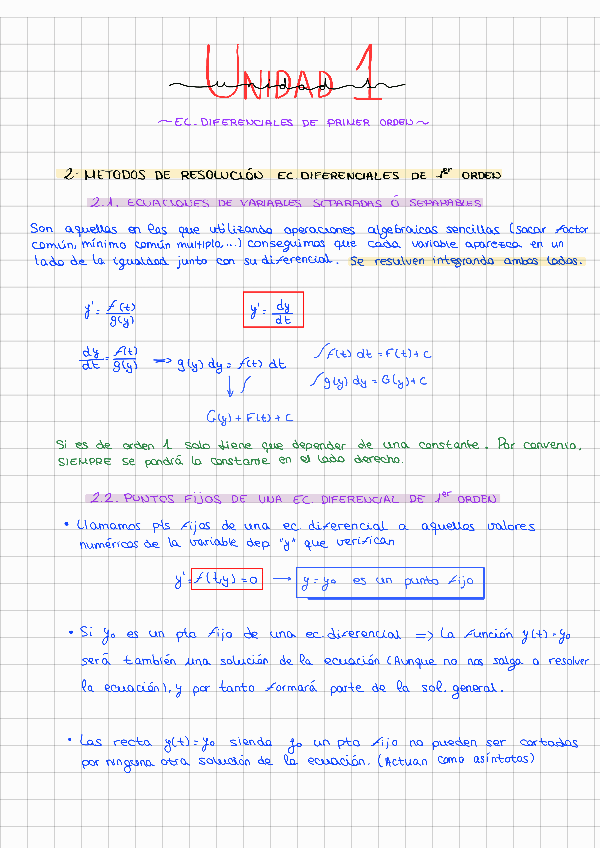 UNIDAD 1
unidad 1
~EC. DIFERENCIALES DE PRIMER ORDEN~
2- METODOS DE RESOLUCIÓN EC. DIFERENCIALES DE 1er ORDEN
2.1. ECUACIONES DE VARIABLES SEPARADAS Ó SEPARABLES
Son aquellas en las que utilizando operaciones algebraicas sencillas (sacar factor
común, mínimo común multipla...) conseguimos que cada variable aparezca en un
lado de la igualdad junto con su diferencial. Se resuelven integrando ambos lados.
y' = f(t)/g(y)    y' = dy/dt
dy/dt = f(t)/g(y) => g(y) dy = f(t) dt    ∫f(t) dt = F(t) + C
↓ ∫    ∫g(y) dy = G(y) + C
G(y) + F(t) + C
Si es de orden 1 solo tiene que depender de una constante. Por convenio,
SIEMPRE se pondrá la constante en el lado derecho.
2.2. PUNTOS FIJOS DE UNA EC. DIFERENCIAL DE 1er ORDEN
• Llamamos pts fijos de una ec. diferencial a aquellos valores
numéricos de la variable dep "y" que verifican
y' = f(t,y) = 0 → y = y₀ es un punto fijo
• Si y₀ es un pto fijo de una ec. diferencial => La función y(t) = y₀
será también una solución de la ecuación (Aunque no nos salga a resolver
la ecuación), y por tanto formará parte de la sol. general.
• Las recta y(t) = y₀ siendo y₀ un pto fijo no pueden ser cortadas
por ninguna otra solución de la ecuación. (Actuan como asíntotas)